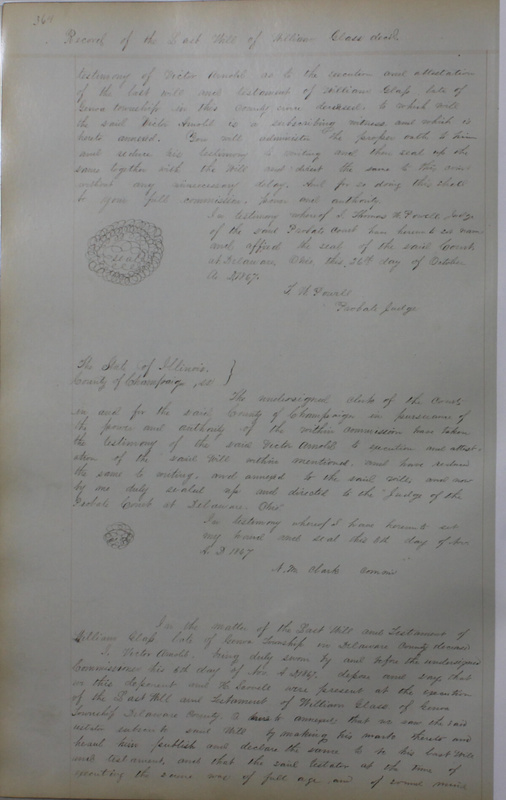 364
Record of the Last Will of William Class decd.
testimony of Victor Arnold as to the execution and attestation
of the last will and testament of William Class late of
Genoa township in this County since deceased. to which will
the said Victor Arnold is a subscribing witness and which is
hereto annexed. You will administer the proper oath to him
and reduce his testimony to writing and then seal up the
same together with the Will and direct the same to this court
without any unnecessary delay. And for so doing this shall
be your full commission, power and authority
In testimony whereof I Thomas W Powell, Judge
of the said Probate Court have hereunto set my name
and affixed the seal of the said Court
at Delaware Ohio this 26th day of October
AD 1867.
T. W. Powell
Probate Judge
seal
The State of Illinois,
County of Champaign, ss }
The undersigned clerk of the County
in and for the said County of Champaign in pursuance of
the power and authority of the within commission have taken
the testimony of the said Victor Arnold to execution and attest-
ation of the said Will within mentioned. and have reduced
the same to writing. and annexed to the said will, and now
by me duly sealed up and directed to the Judge of the
Probate Court at Delaware. Ohio
In testimony whereof I have hereunto set
my hand and seal this 6th day of Nov
A. D 1867
A. M. Clark
In the matter of the Last Will and Testament of
William Class late of Genoa Township in Delaware County deceased
I, Victor Arnold. being duly sworn by and before the undersigned
Commissioner this 6th day of Nov A D 1867. depose and say that
in this deponent and were present at the execution
of the Last Will and Testament of William Class of Genoa
Township Delaware County. O hereto annexed that we saw the said
testator subscribe said Will by making his mark thereto and
heard him publish and declare the same to be his last Will
and testament, and that the said testator at the time of
executing the same was of full age and of sound mind